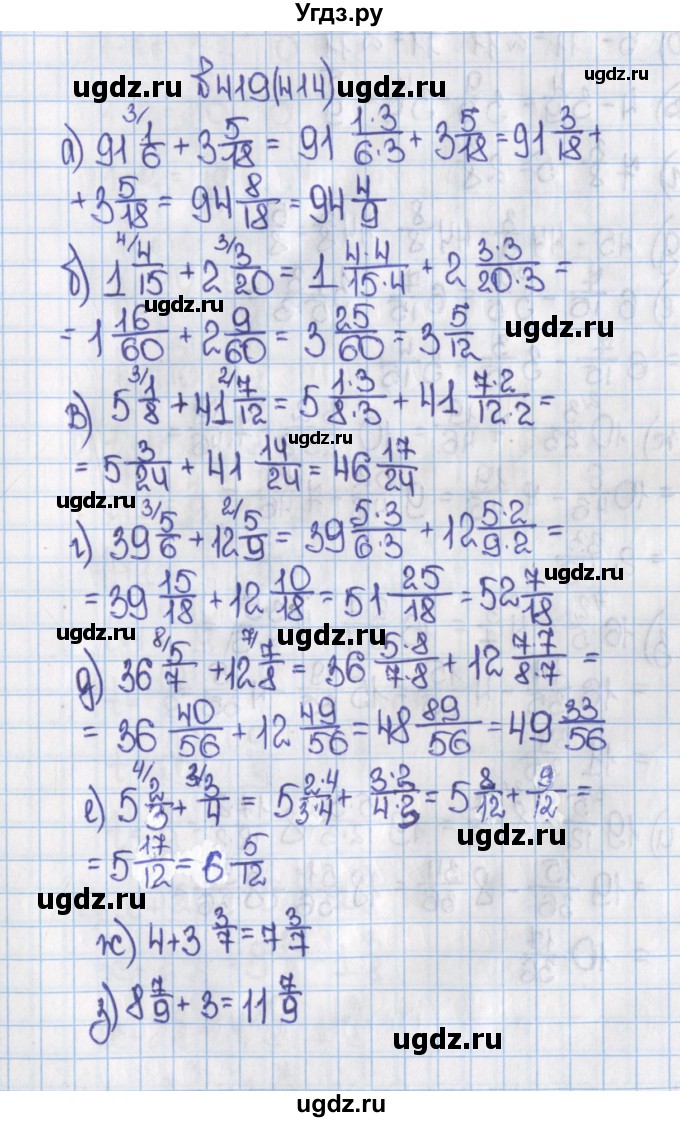 Угдз.ру
№419(414)
ugdz.ru ugdz.ru ugdz.ru
а) 91 3/ 1/6 + 3 5/18 = 91 1·3/6·3 + 3 5/18 = 91 3/18 +
+ 3 5/18 = 94 8/18 = 94 4/9
ugdz.ru ugdz.ru
б) 1 4/ 4/15 + 2 3/ 3/20 = 1 4·4/15·4 + 2 3·3/20·3 =
ugdz.ru
= 1 16/60 + 2 9/60 = 3 25/60 = 3 5/12
ugdz.ru
в) 5 3/ 1/8 + 41 2/ 7/12 = 5 1·3/8·3 + 41 7·2/12·2 =
ugdz.ru
= 5 3/24 + 41 14/24 = 46 17/24
ugdz.ru
г) 39 3/ 5/6 + 12 2/ 5/9 = 39 5·3/6·3 + 12 5·2/9·2 =
ugdz.ru
= 39 15/18 + 12 10/18 = 51 25/18 = 52 7/18
ugdz.ru ugdz.ru
д) 36 8/ 5/7 + 12 7/ 7/8 = 36 5·8/7·8 + 12 7·7/8·7 =
= 36 40/56 + 12 49/56 = 48 89/56 = 49 33/56
ugdz.ru
е) 5 4/ 2/3 + 3/ 3/4 = 5 2·4/3·4 + 3·3/4·3 = 5 8/12 + 9/12 =
ugdz.ru
= 5 17/12 = 6 5/12
ugdz.ru
ж) 4 + 3 3/7 = 7 3/7
з) 8 7/9 + 3 = 11 7/9
ugdz.ru
ugdz.ru